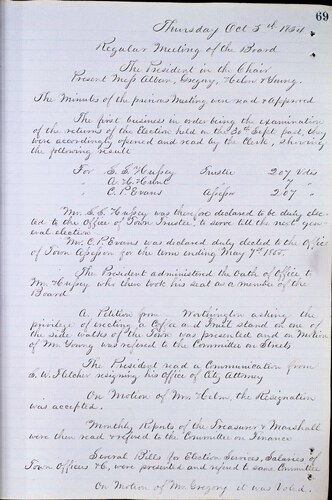 69
Thursday Oct 5th 1854
Regular Meeting of the Board
The President in the Chair
Present Messrs Alban, Gregory, Helm & Young.
The Minutes of the previous Meeting were read & approved
The first business in order being the examination
of the returns of the Election held on the 30th Sept past, they
were accordingly opened and read by the Clerk, showing
the following result
For S. S. Hussey Trustee 207 Votes
" A. H. Helm " 7 "
" C. P. Evans Assessor 267 "
Mr. S. S. Hussey was therefore declared to be duly elec-
ted to the Office of Town Trustee, to serve till the next gen-
eral election.
Mr. C. P. Evans was declared duly elected to the Office
of Town Assessor for the term ending May 7th 1855.
The President administered the Oath of Office to
Mr. Hussey who then took his seat as a member of the
Board
A. Petition from Worthington asking the
privilege of erecting a Coffee and Fruit stand on one of
the side walks of the Town was presented and on Motion
of Mr Young was referred to the Committee on Streets
The President read a Communication from
S. W. Fletcher resigning his Office of City Attorney
On Motion of Mr. Helm, the Resignation
was accepted.
Monthly Reports of the Treasurer & Marshall
were then read & refered to the Committee on Finance
Several Bills for Election Services, Salaries of
Town Officers &c, were presented and refered to same Committee
On Motion of Mr Gregory it was Voted.